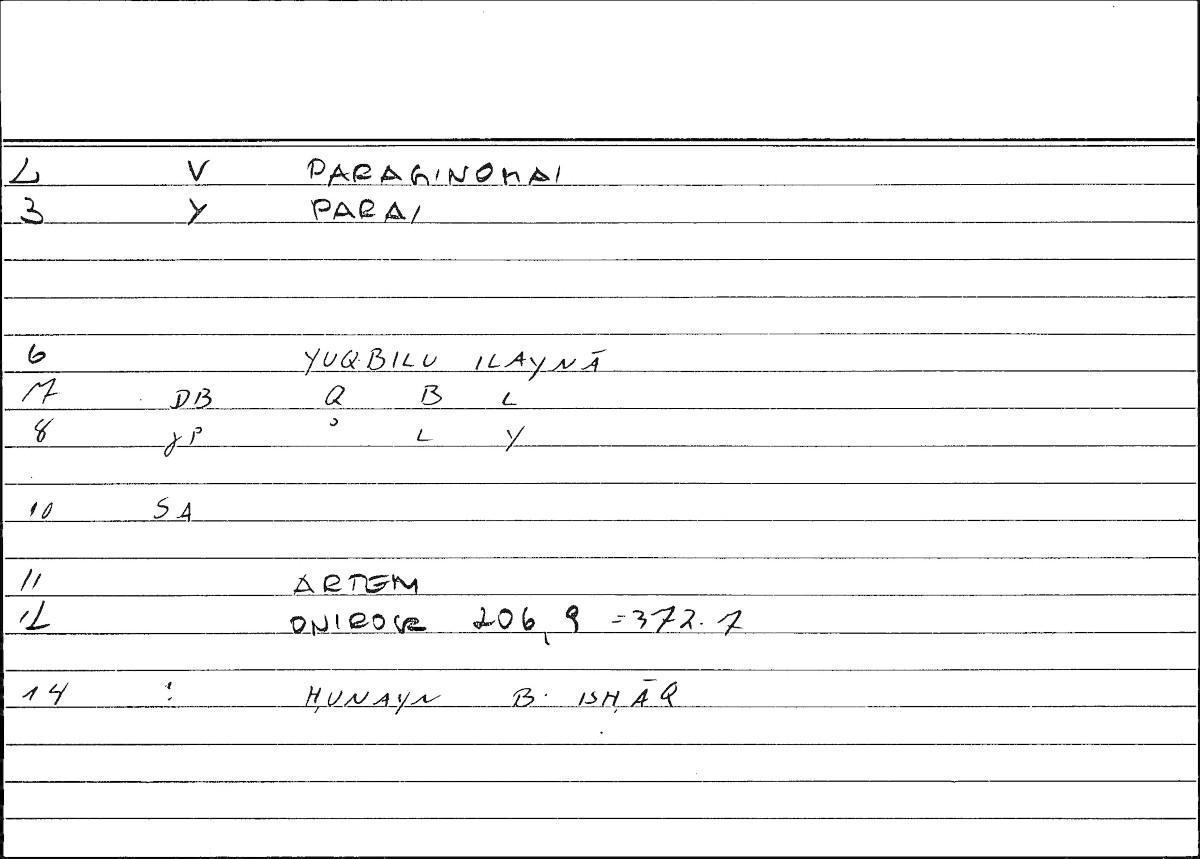 2 V PARAGINOMAI
3 Y PARA/
6 YUQBILU ILAYNĀ
7 DB Q B L
8 γP ʾ L Y
10 SA
11 ARTEM
12 ONIROCR 206,9 =372.7
14 : ḤUNAYN B. ISḤĀQ